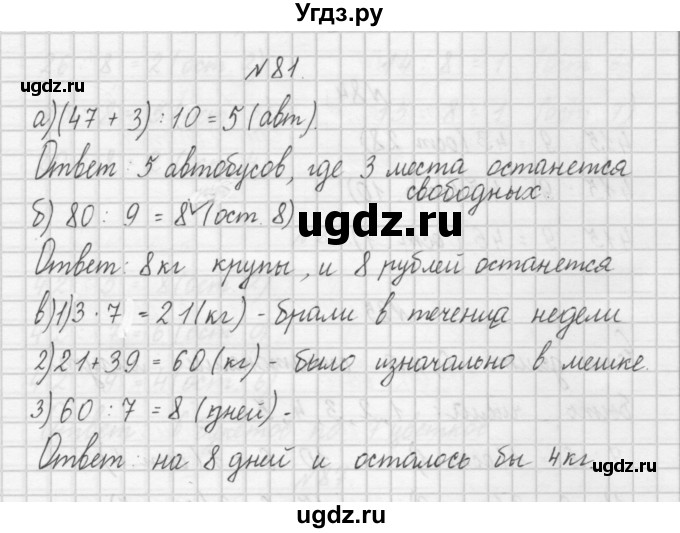 Угдз.ру
№81.
а)(47 + 3) : 10 = 5 (авт).
Ответ: 5 автобусов, где 3 места останется
свободных.
б) 80 : 9 = 8 (ост. 8)
Ответ: 8кг крупы, и 8 рублей останется
в)1)3 · 7 = 21(кг) - брали в течении недели
2)21+39 = 60(кг) - было изначально в мешке.
3) 60 : 7 = 8 (дней) -
Ответ: на 8 дней и осталось бы 4кг
ugdz.ru
ugdz.ru
ugdz.ru
ugdz.ru
ugdz.ru
ugdz.ru